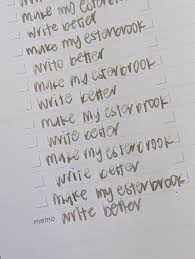 make my esterbrook
write better
make my esterbrook
write better
make my esterbrook
write better
make my esterbrook
write better
make my esterbrook
write better
make my esterbrook
memo write better